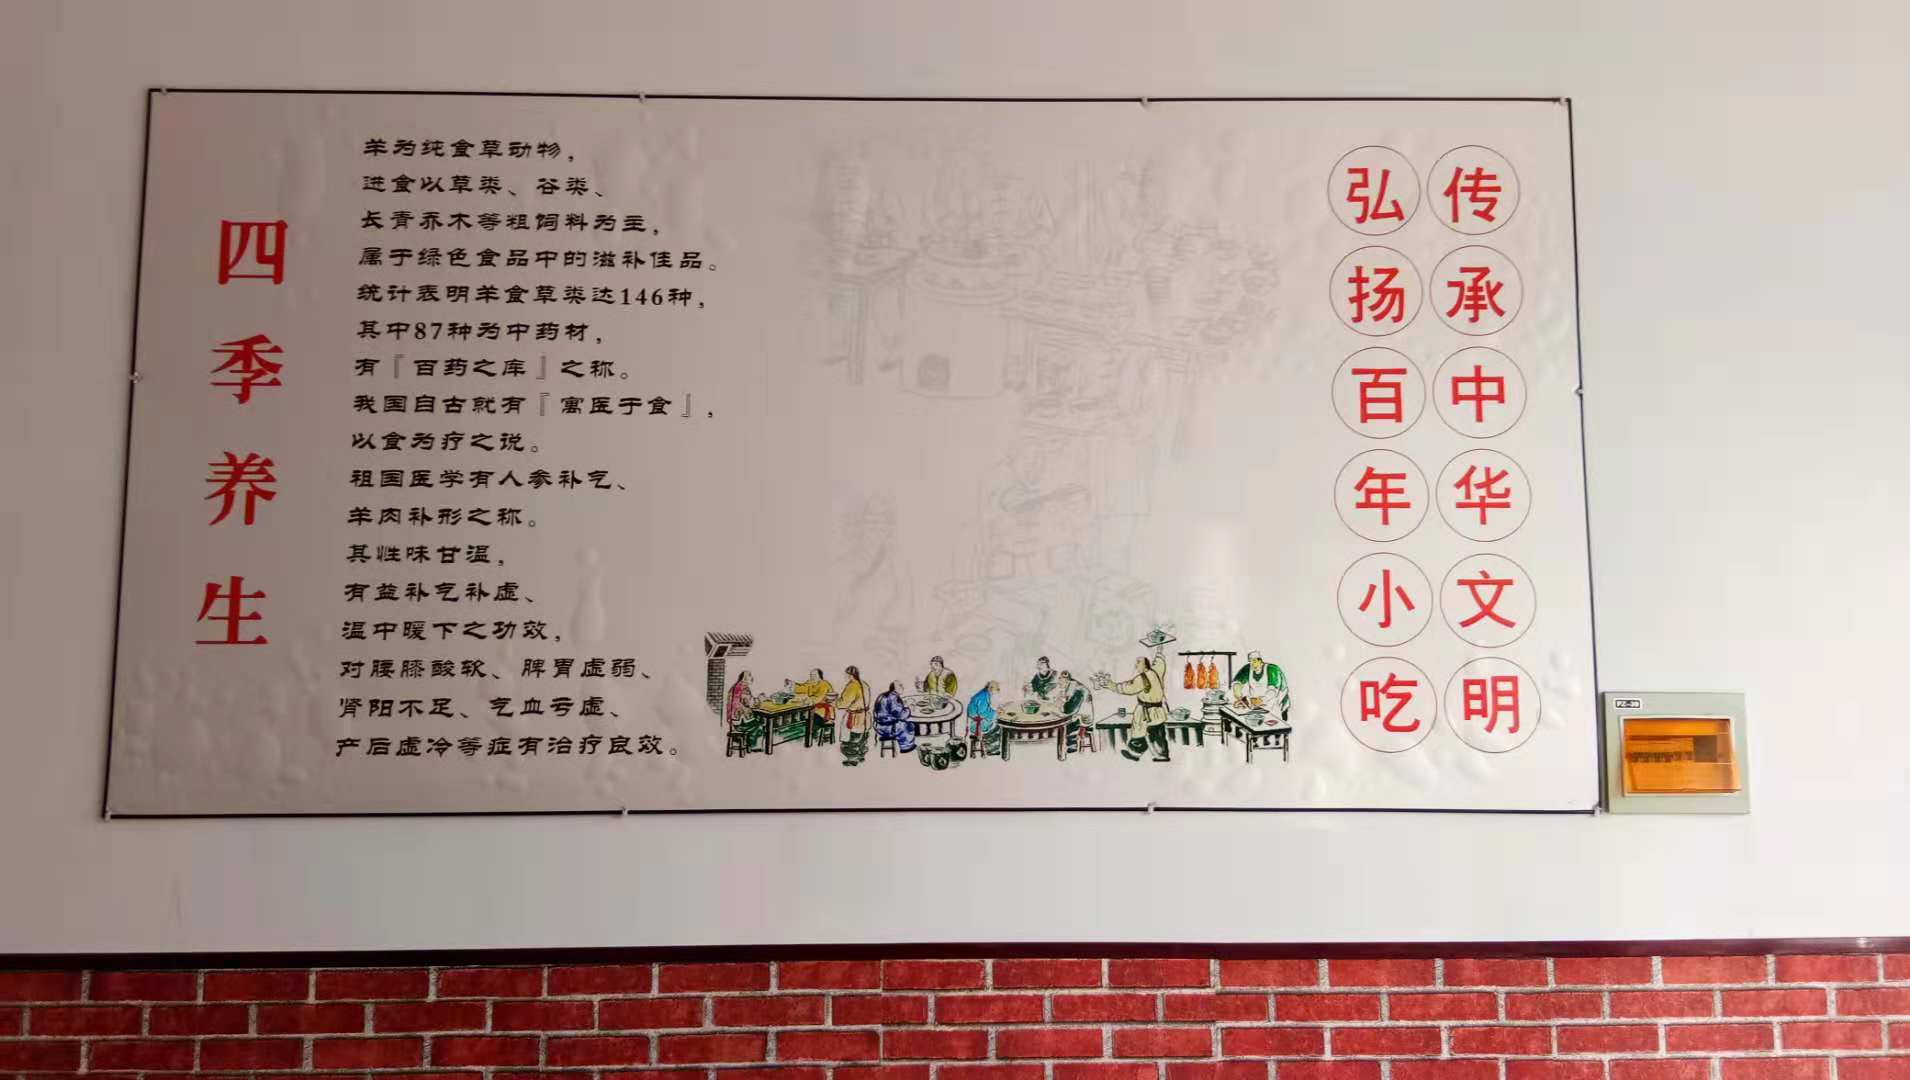 四季养生
羊为纯食草动物，
进食以草类、谷类、
长青乔木等粗饲料为主，
属于绿色食品中的滋补佳品。
统计表明羊食草类达146种，
其中87种为中药材，
有『百药之库』之称。
我国自古就有『寓医于食』，
以食为疗之说。
祖国医学有人参补气、
羊肉补形之称。
其性味甘温，
有益补气补虚、
温中暖下之功效，
对腰膝酸软、脾胃虚弱、
肾阳不足、气血亏虚、
产后虚冷等症有治疗良效。
传承中华文明
弘扬百年小吃